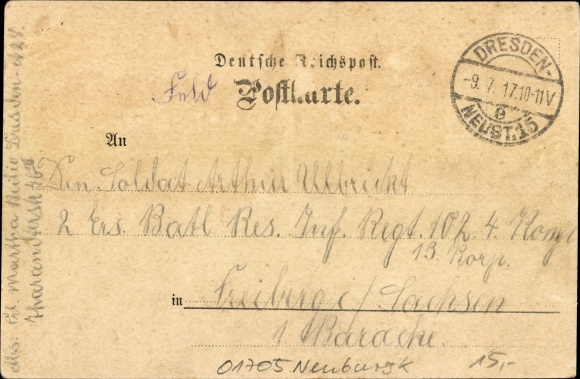 Deutsche Reichspost.
Feld Postkarte.
DRESDEN-
-9.7.17.10-11V
e
NEUST.15
An
Den Soldat Arthur Ullbricht
2 Ers. Batl Res. Inf. Regt. 102. 4. Komp
13. Korp.
in Freiberg i/ Sachsen
1 Baracke.
01705 Neuburgk 15,-
Abs. Martha Dresden-